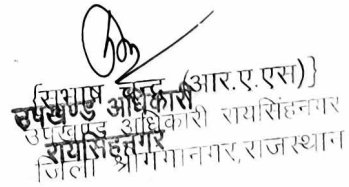 {सुभाष चन्द्र (आर.ए.एस)}
उपखण्ड अधिकारी
उपखण्ड अधिकारी रायसिंहनगर
रायसिंहनगर
जिला श्रीगंगानगर, राजस्थान